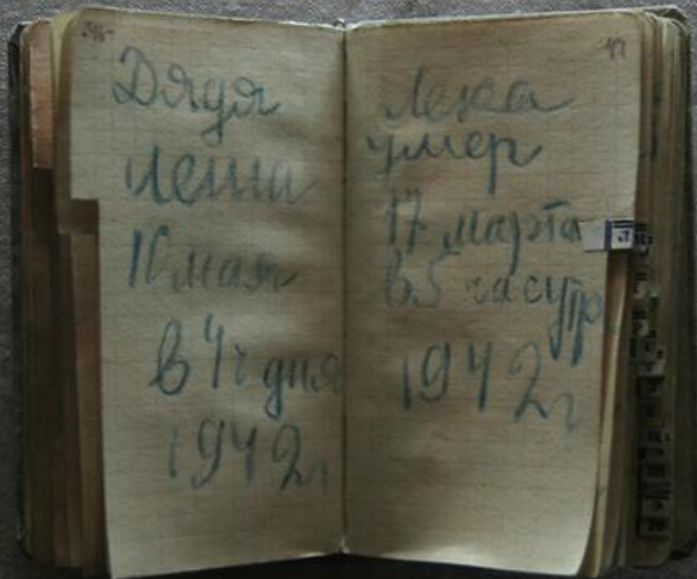 Дядя
Леша
10 мая
в 4ч дня
1942г
Лека
умер
17 марта
в 5 часутр
1942г
Л